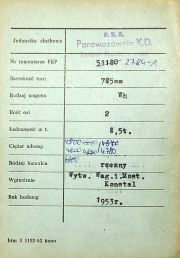 P. K. P.
Jednostka służbowa
Parowozownia K.D.
Nr inwentarza PKP 51180 2784-1
Szerokość toru 785mm
Rodzaj wagonu Wh
Ilość osi 2
Ładowność w t. 8,5t.
Ciężar własny
4780
Rodzaj hamulca ręczny
Wytwórnia Wytw. Wag.i.Most.
Konstal
Rok budowy 1953r.